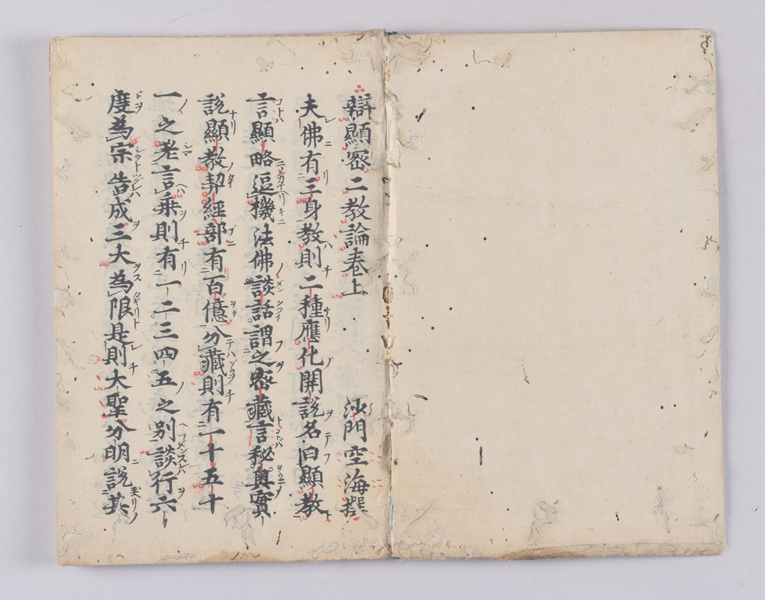 辯顯密二教論巻上 沙門空海撰
夫佛有三身教則二種應化開說名曰顯教
言顯略逗機法佛談話謂之密藏言秘奥實
說顯教契經部有百億分藏則有一十五十
一之老言乘則有一二三四五之别談行六
度為宗告成三大為限是則大聖分明說其